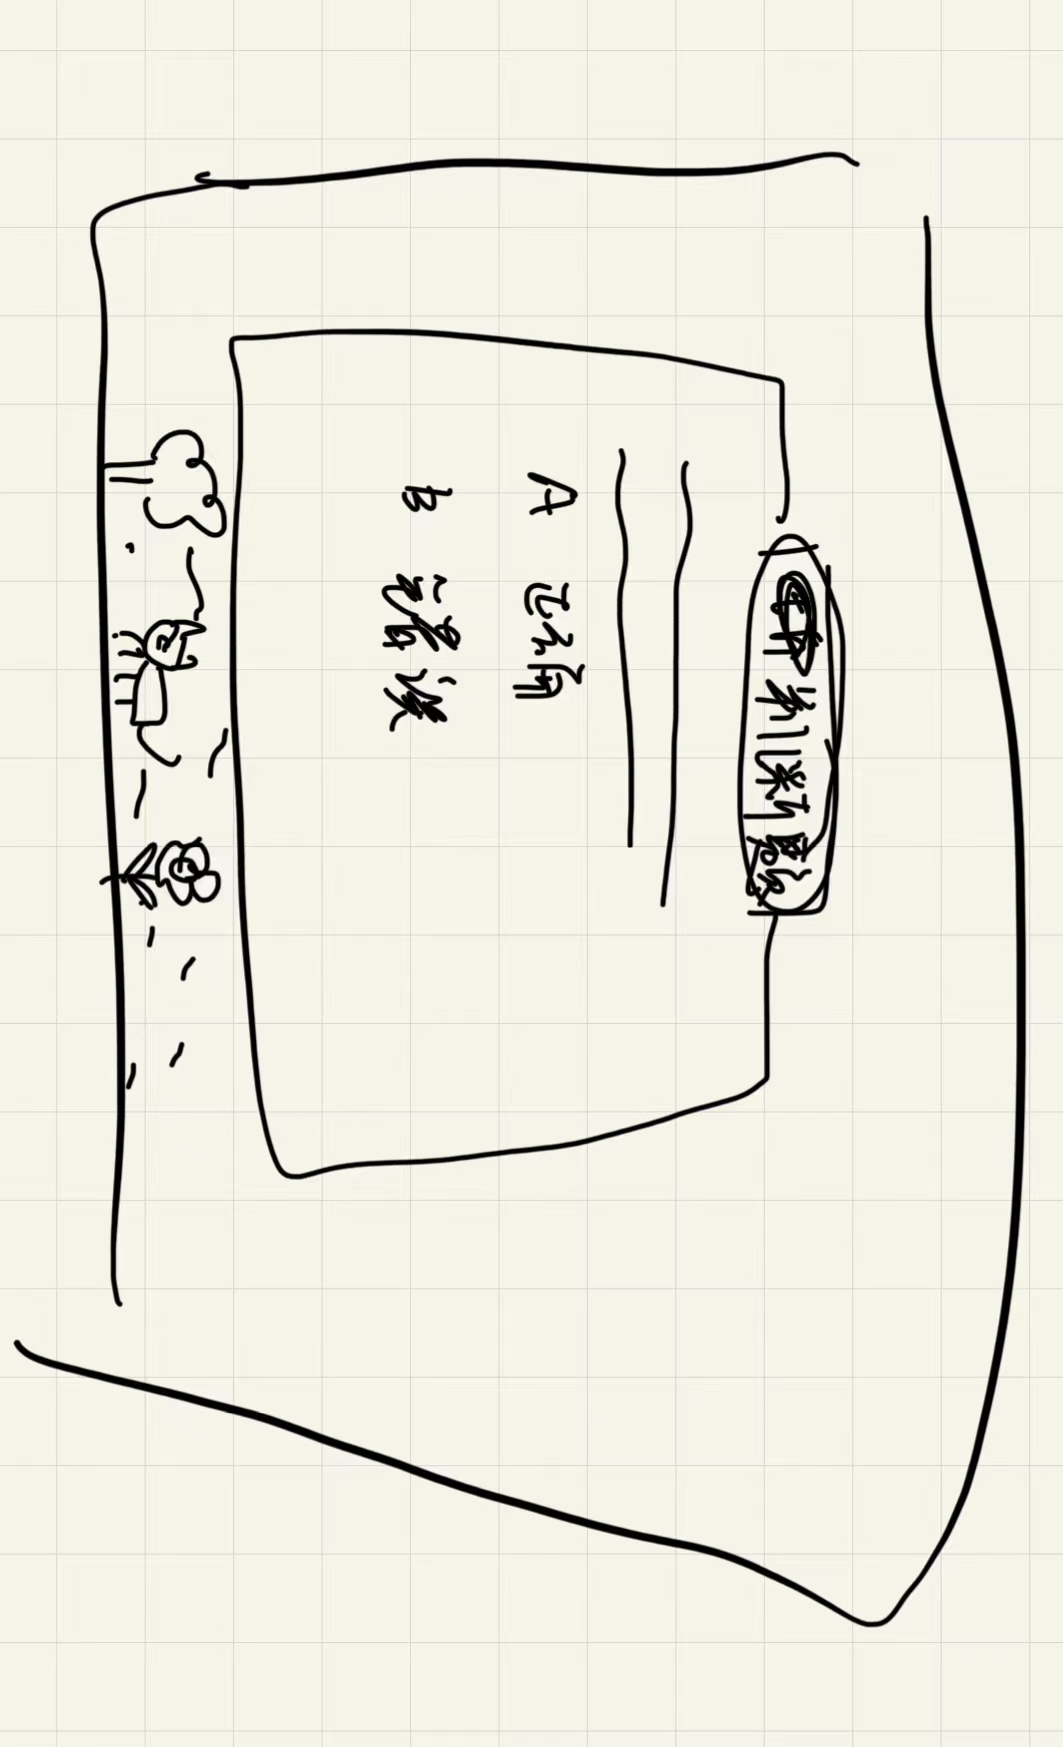 判断题
A 正确
B 错误